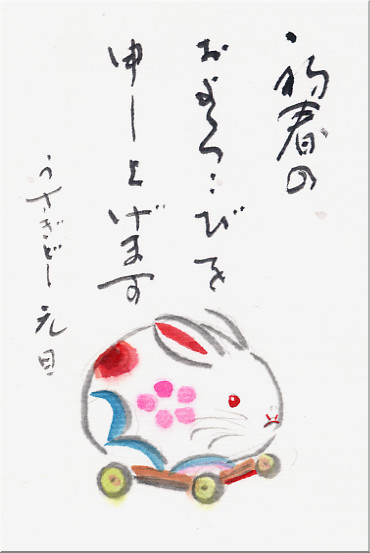 初春の
およろこびを
申し上げます
うさぎどし 元旦